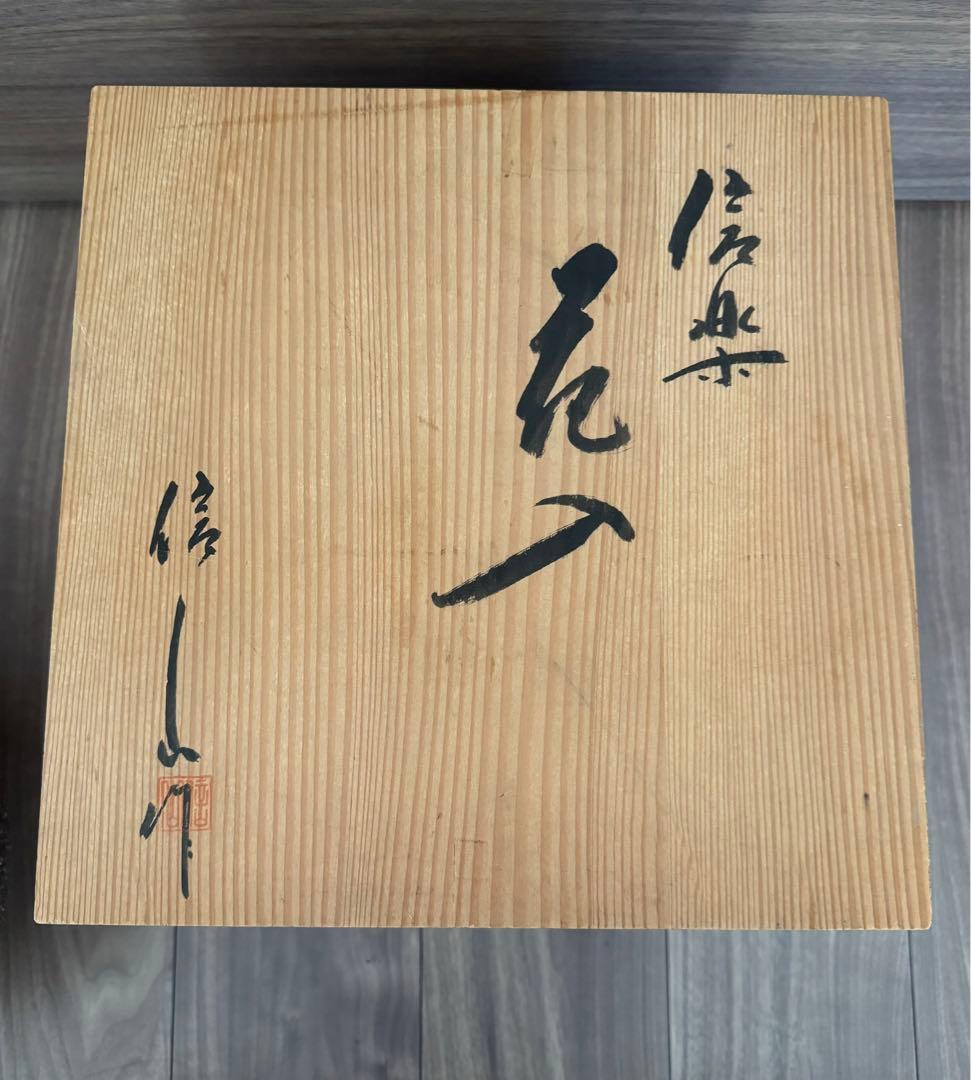 信楽
花入
信山作